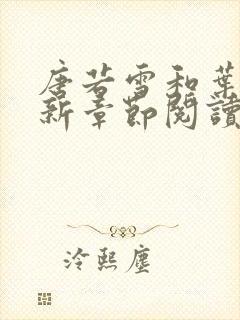 唐若雪和葉
新章節閱讀
冷熙塵